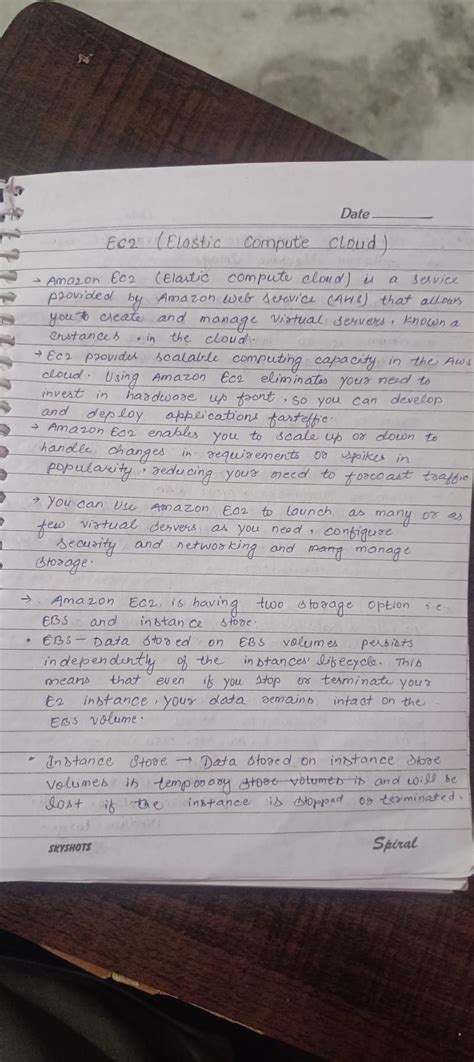 Date
EC2 (Elastic Compute Cloud)
→ Amazon EC2 (Elastic compute cloud) is a service
provided by Amazon web service (AWS) that allows
you to create and manage virtual servers, known a
instances in the cloud.
→ EC2 provides scalable computing capacity in the AWS
cloud. Using Amazon EC2 eliminates your need to
invest in hardware up front, so you can develop
and deploy applications
→ Amazon EC2 enables you to scale up or down to
handle changes in requirements or spikes in
popularity, reducing your need to forecast traffic
→ You can use Amazon EC2 to launch as many or as
few virtual servers as you need, configure
security and networking and manage
storage.
→ Amazon EC2 is having two storage option i.e
EBS and instance store.
• EBS - Data stored on EBS volumes persists
independently of the instances lifecycle. This
means that even if you stop or terminate your
E2 instance, your data remains intact on the
EBS volume.
• Instance Store → Data stored on instance store
volumes is temporary store volumes is and will be
lost if the instance is stopped or terminated.
SKYSHOTS Spiral